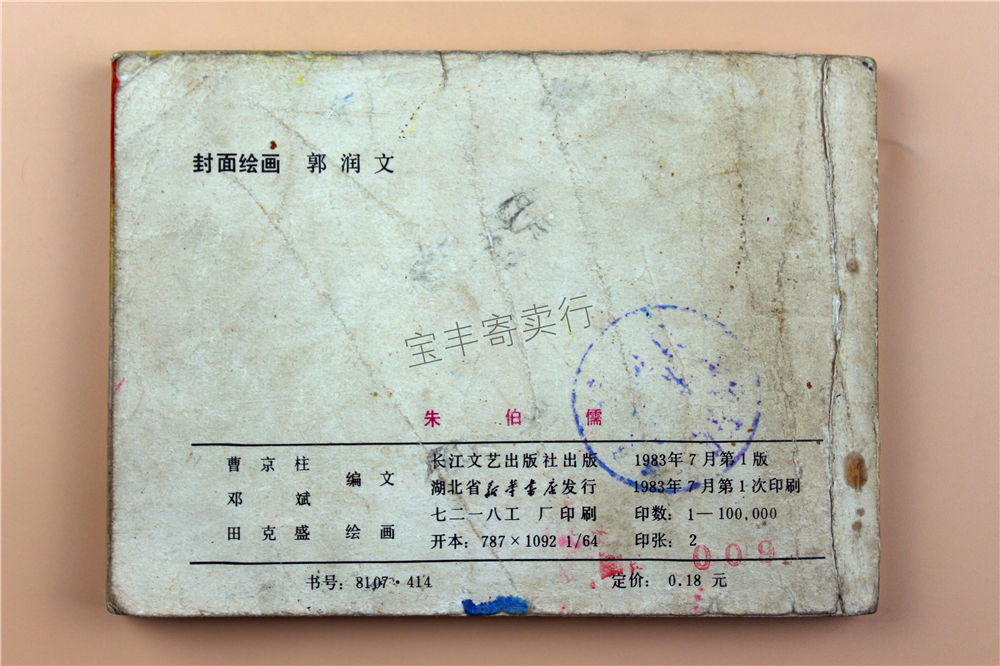 封面绘画 郭润文
宝丰寄卖行
朱伯儒
曹京柱 编文
邓斌
田克盛 绘画
长江文艺出版社出版 1983年7月第1版
湖北省新华书店发行 1983年7月第1次印刷
七二一八工厂印刷 印数：1—100,000
开本：787×1092 1/64 印张：2
009
书号：8107·414 定价：0.18元